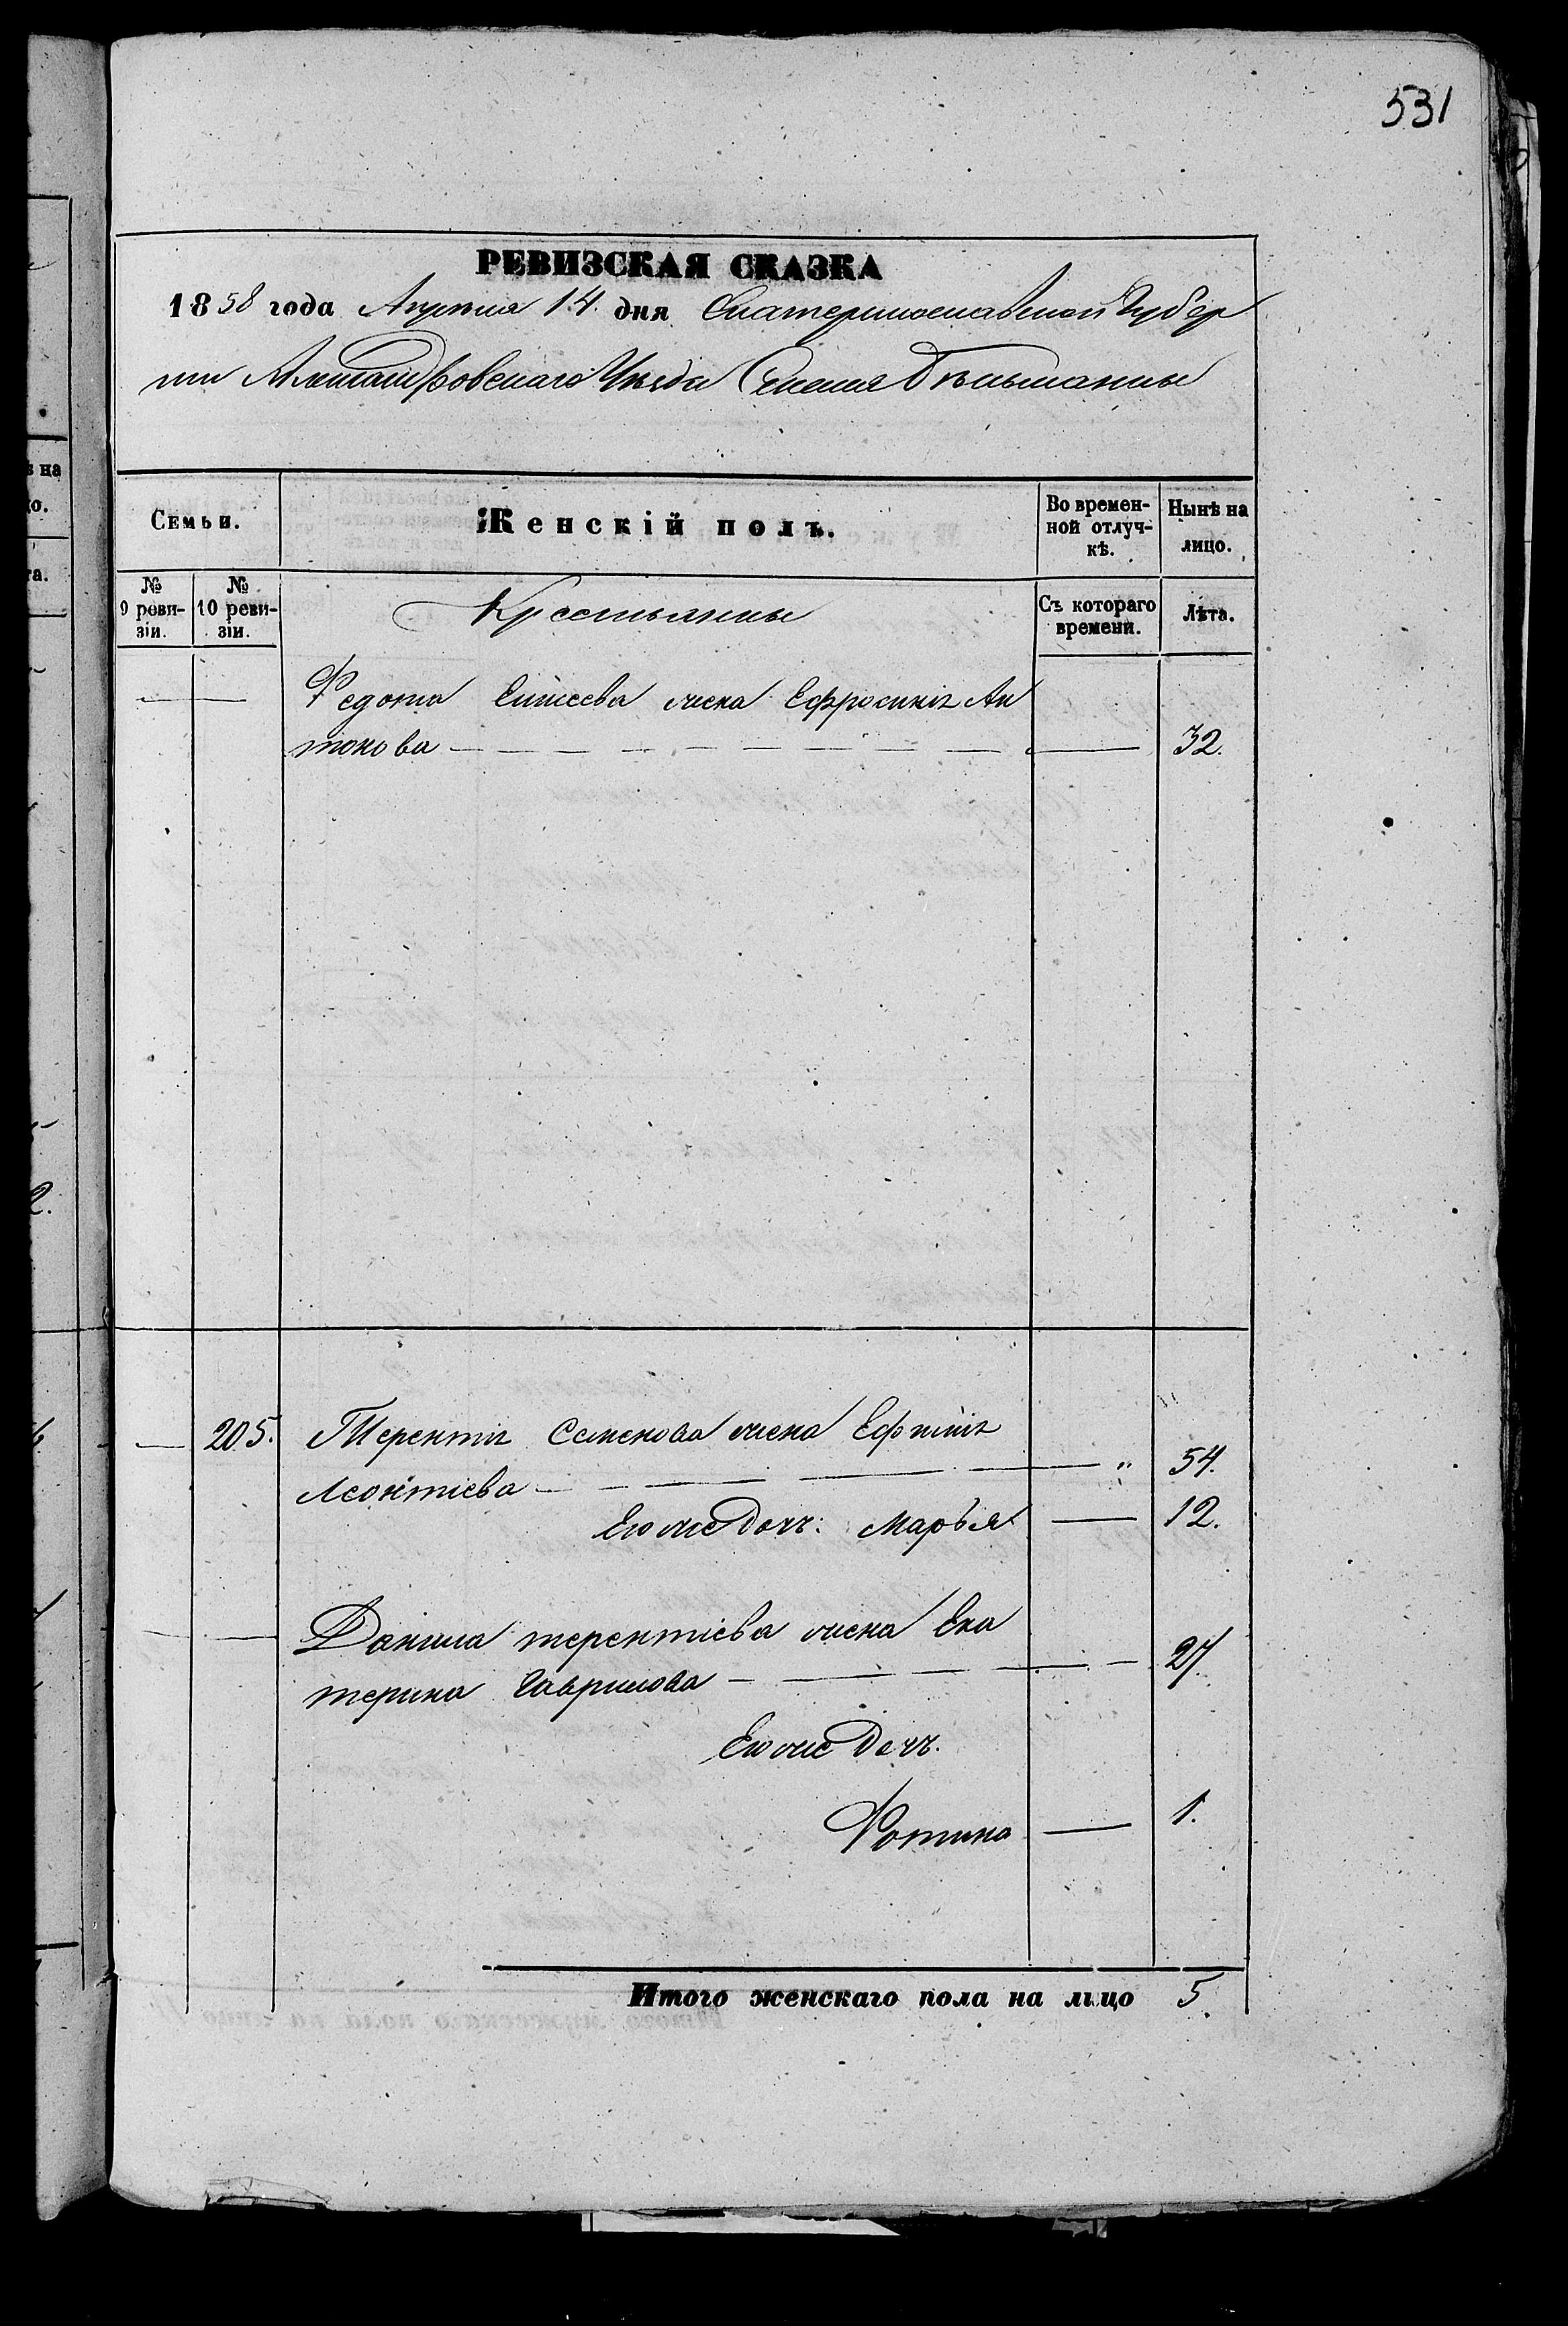 531
РЕВИЗСКАЯ СКАЗКА
1858 года Апреля 14. дня Екатеринославской Губер
нии Александровскаго Уезда Селения Бельманки
Семьи.
Женскій полъ.
Во времен-
ной отлуч-
кѣ.
Нынѣ на
лицо.
№
9 реви-
зіи.
№
10 реви-
зіи.
Крестьянъ
Съ котораго
времени.
Лѣта.
Федота Елисеева жена Ефросинія Ан
тонова 32.
205. Терентія Семенова жена Ефимія
Леонтіева 54.
Ею же дочь: Марья 12.
Данила терентіева жена Ека
терина Гаврилова 27.
Ею же дочь.
Фотина 1.
Итого женскаго пола на лицо 5.